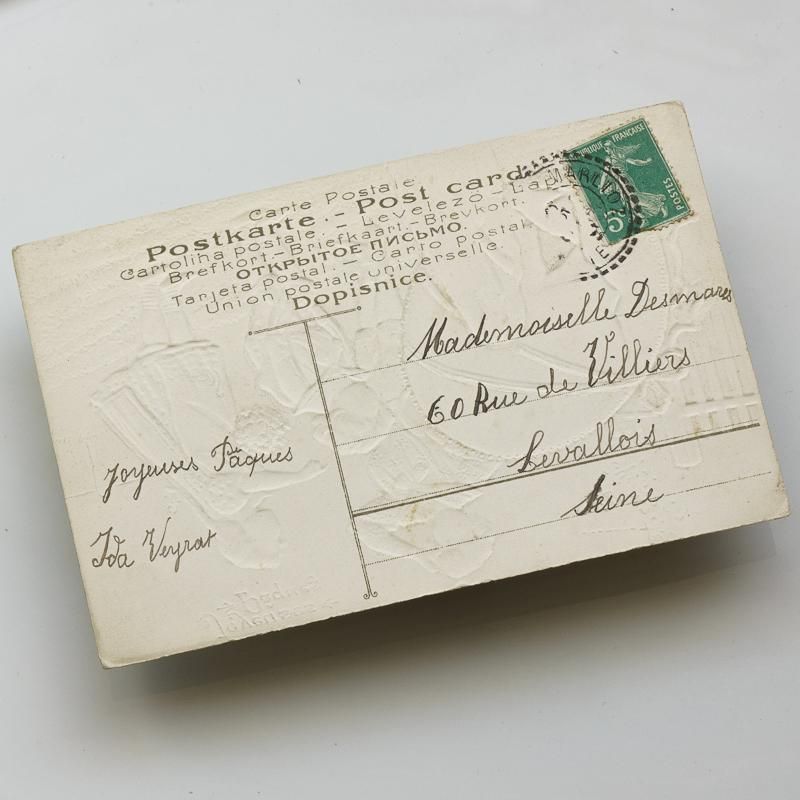 Carte Postale
Postkarte.- Post card
Cartolina postale. - Levelezó-Lap
Brefkort-Briefkaart-Brevkort.
ОТКРЫТОЕ ПИСЬМО.
Tarjeta Postal. - Carto Postal
Union postale universelle.
Dopisnice.
FRANÇAISE
POSTES
5
Mademoiselle Desmares
60 Rue de Villiers
Levallois
Seine
Joyeuses Pâques
Ida Veyrat